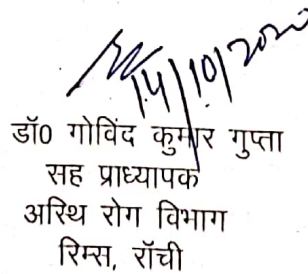 14/10/2020
डॉ0 गोविंद कुमार गुप्ता
सह प्राध्यापक
अस्थि रोग विभाग
रिम्स, रॉची